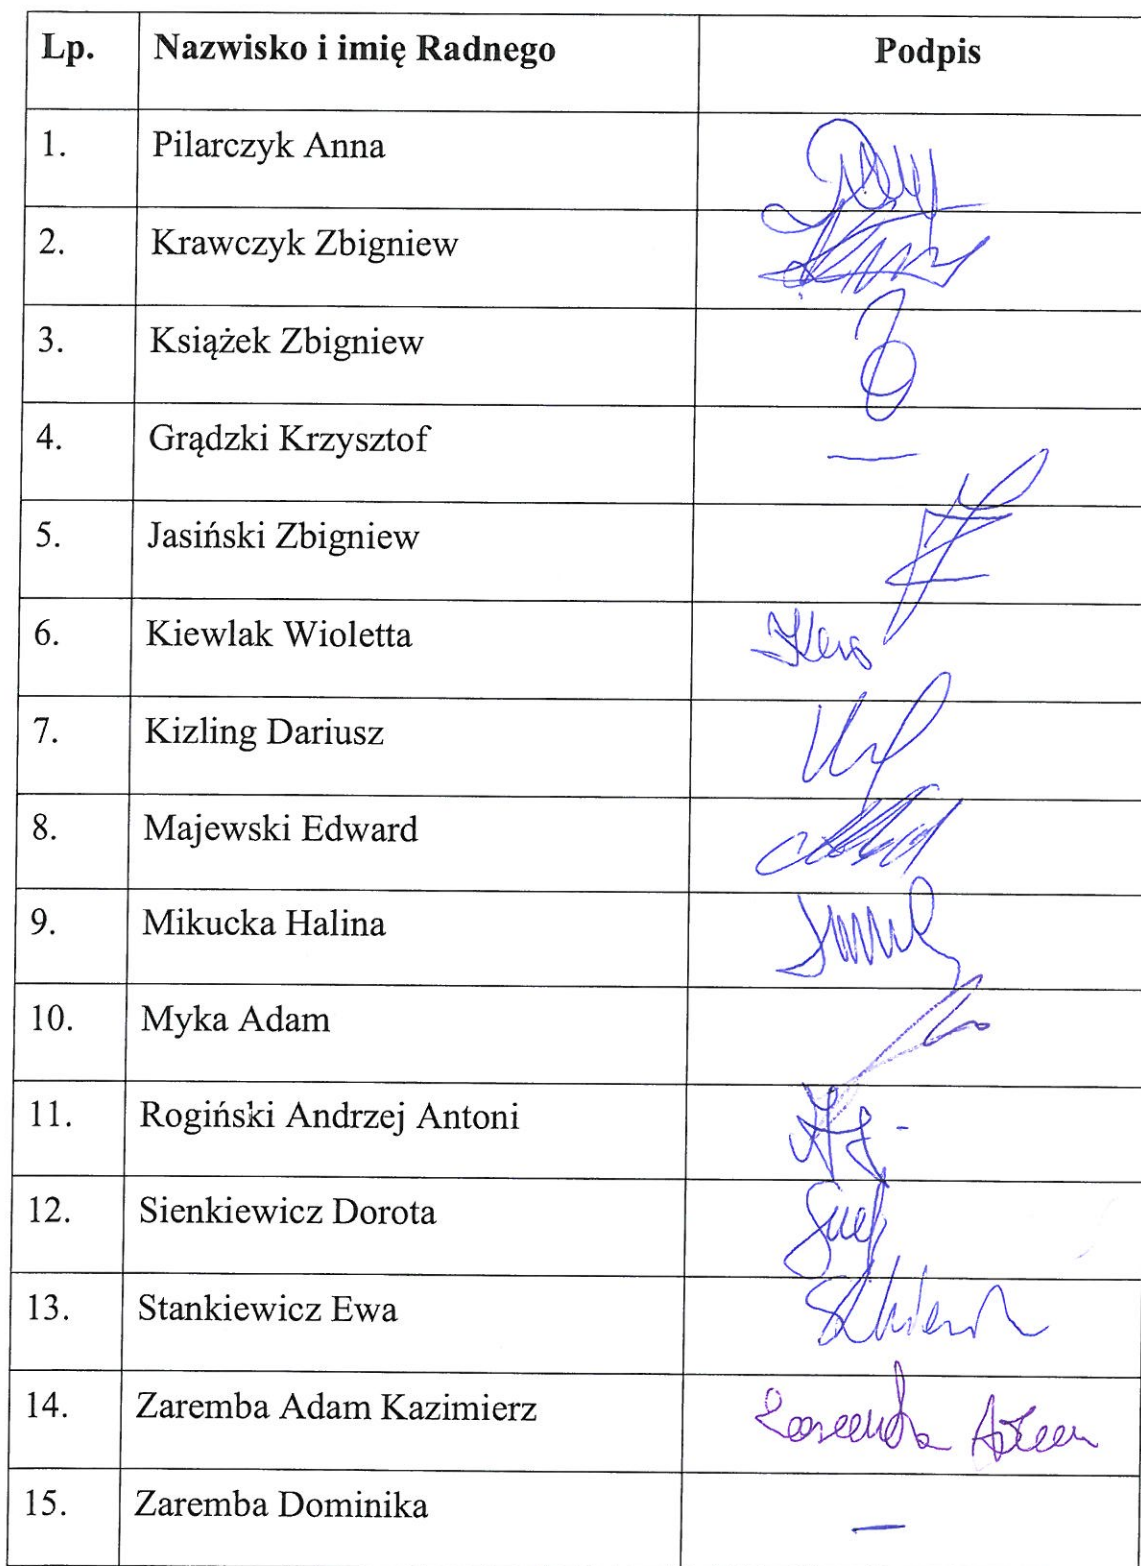 Lp. Nazwisko i imię Radnego Podpis
1. Pilarczyk Anna
2. Krawczyk Zbigniew
3. Książek Zbigniew
4. Grądzki Krzysztof —
5. Jasiński Zbigniew
6. Kiewlak Wioletta
7. Kizling Dariusz
8. Majewski Edward
9. Mikucka Halina
10. Myka Adam
11. Rogiński Andrzej Antoni
12. Sienkiewicz Dorota
13. Stankiewicz Ewa
14. Zaremba Adam Kazimierz Zaremba Adam
15. Zaremba Dominika —